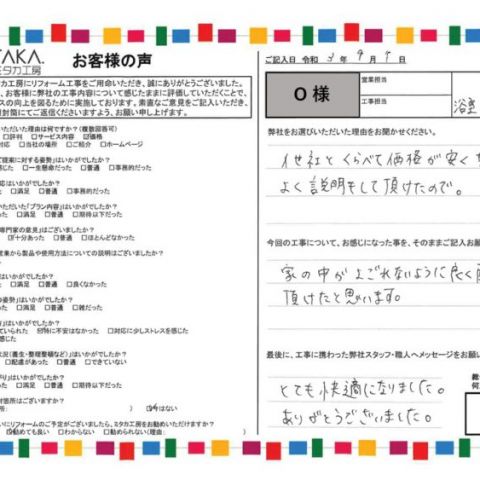 TAKA.
ミタカ工房
お客様の声
タカ工房にリフォーム工事をご用命いただき、誠にありがとうございました。
、お客様に弊社の工事内容について感じたままに評価していただくことで、
スの向上を図るために実施しております。素直なご意見をご記入いただき、
封筒にてご返信くださいますよう、お願い申し上げます。
いただいた理由は何ですか?(複数回答可)
□評判 □サービス内容 ☑価格
対応 □当社の場所 □ご紹介 □ホームページ
ご提案に対する姿勢はいかがでしたか?
感じた □一生懸命だった □普通 □事務的だった
応はいかがでしたか?
□満足 □普通 □事務的だった
いただいた「プラン内容」はいかがでしたか?
った □満足 □普通 □期待以下だった
専門家の意見」はございましたか?
十分あった □普通 □ほとんどなかった
営業から製品や使用方法についての説明はございましたか?
はいかがでしたか?
た □満足 □普通 □良くなかった
の姿勢」はいかがでしたか?
った □満足 □普通 □雑だった
」はいかがでしたか?
ていられた ☑特に不安はなかった □対応に少しストレスを感じた
感じた
状況(養生・整理整頓など)」はいかがでしたか?
□配慮があった □普通 □できていない
がり」はいかがでしたか?
った □満足 □普通 □期待以下だった
対箇所はございますか?
所: ) ☑はない
いにリフォームのご予定がございましたら、ミタカ工房をお勧めいただけますか?
☑勧めても良い □わからない □勧められない(理由: )
ご記入日 令和 3 年 9 月
O様
営業担当
工事担当
浴室
弊社をお選びいただいた理由をお聞かせください。
他社とくらべて価格が安く
よく説明もして頂けたので。
今回の工事について、お感じになった事を、そのままご記入お願
家の中がよごれないように良く
頂けたと思います。
最後に、工事に携わった弊社スタッフ・職人へメッセージをお願い
とても快適になりました。
ありがとうございました。